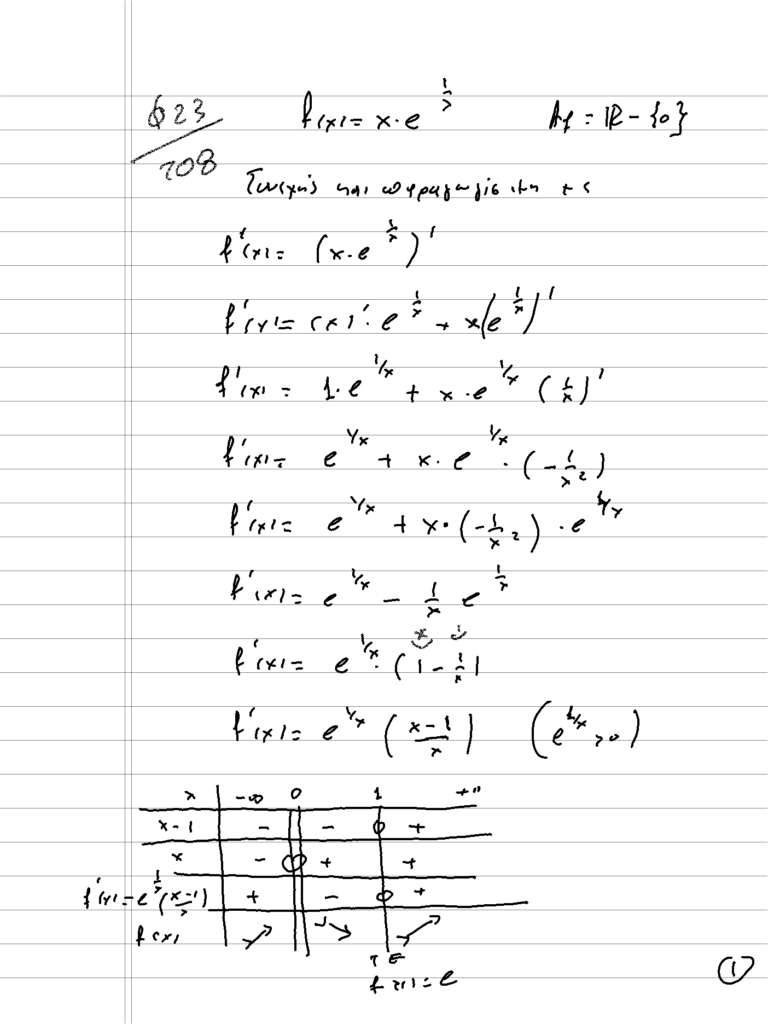 623/208 f(x) = x·e^{1/x} Af = ℝ - {0}
και
f'(x) = (x·e^{1/x})'
f'(x) = (x)'·e^{1/x} + x(e^{1/x})'
f'(x) = 1·e^{1/x} + x·e^{1/x} (1/x)'
f'(x) = e^{1/x} + x·e^{1/x}·(-1/x²)
f'(x) = e^{1/x} + x·(-1/x²)·e^{1/x}
f'(x) = e^{1/x} - 1/x e^{1/x}
f'(x) = e^{1/x}·(1 - 1/x)
f'(x) = e^{1/x} ((x-1)/x) (e^{1/x} > 0)
x -∞ 0 1 +∞
x-1 - - 0 +
x - 0 + +
f'(x) = e^{1/x}((x-1)/x) + - 0 +
f(x) ↗ ↘ ↗
Τ Ε
f(1) = e
1